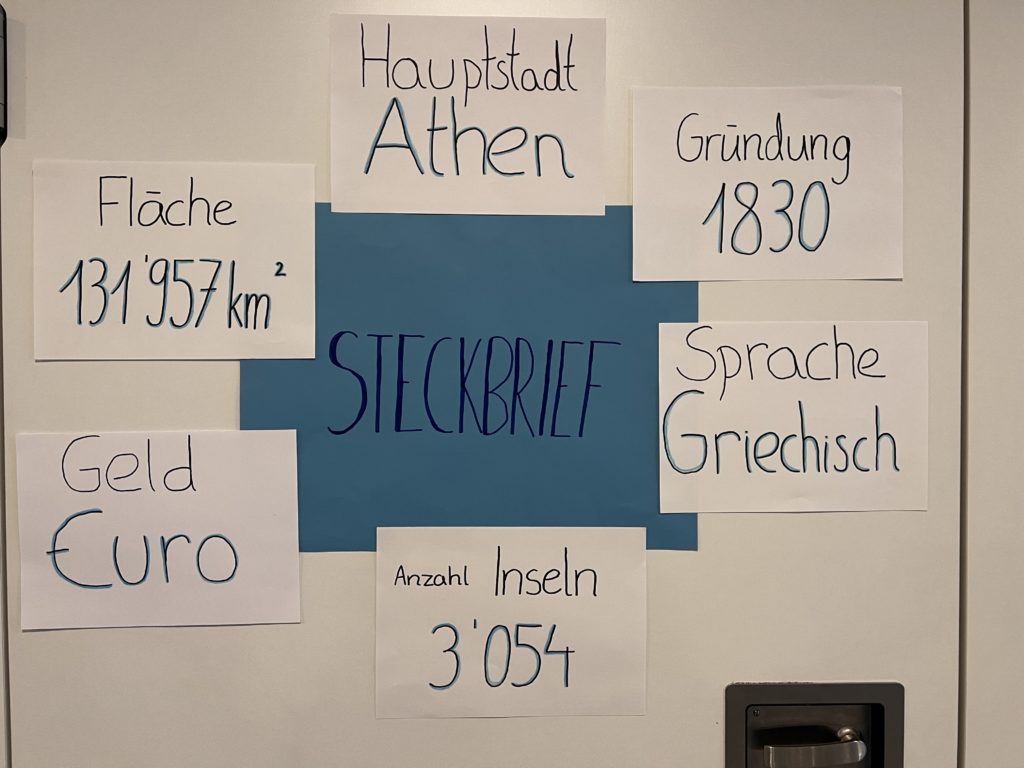 Hauptstadt
Athen
Gründung
1830
Fläche
131'957 km²
STECKBRIEF
Sprache
Griechisch
Geld
€uro
Anzahl Inseln
3'054